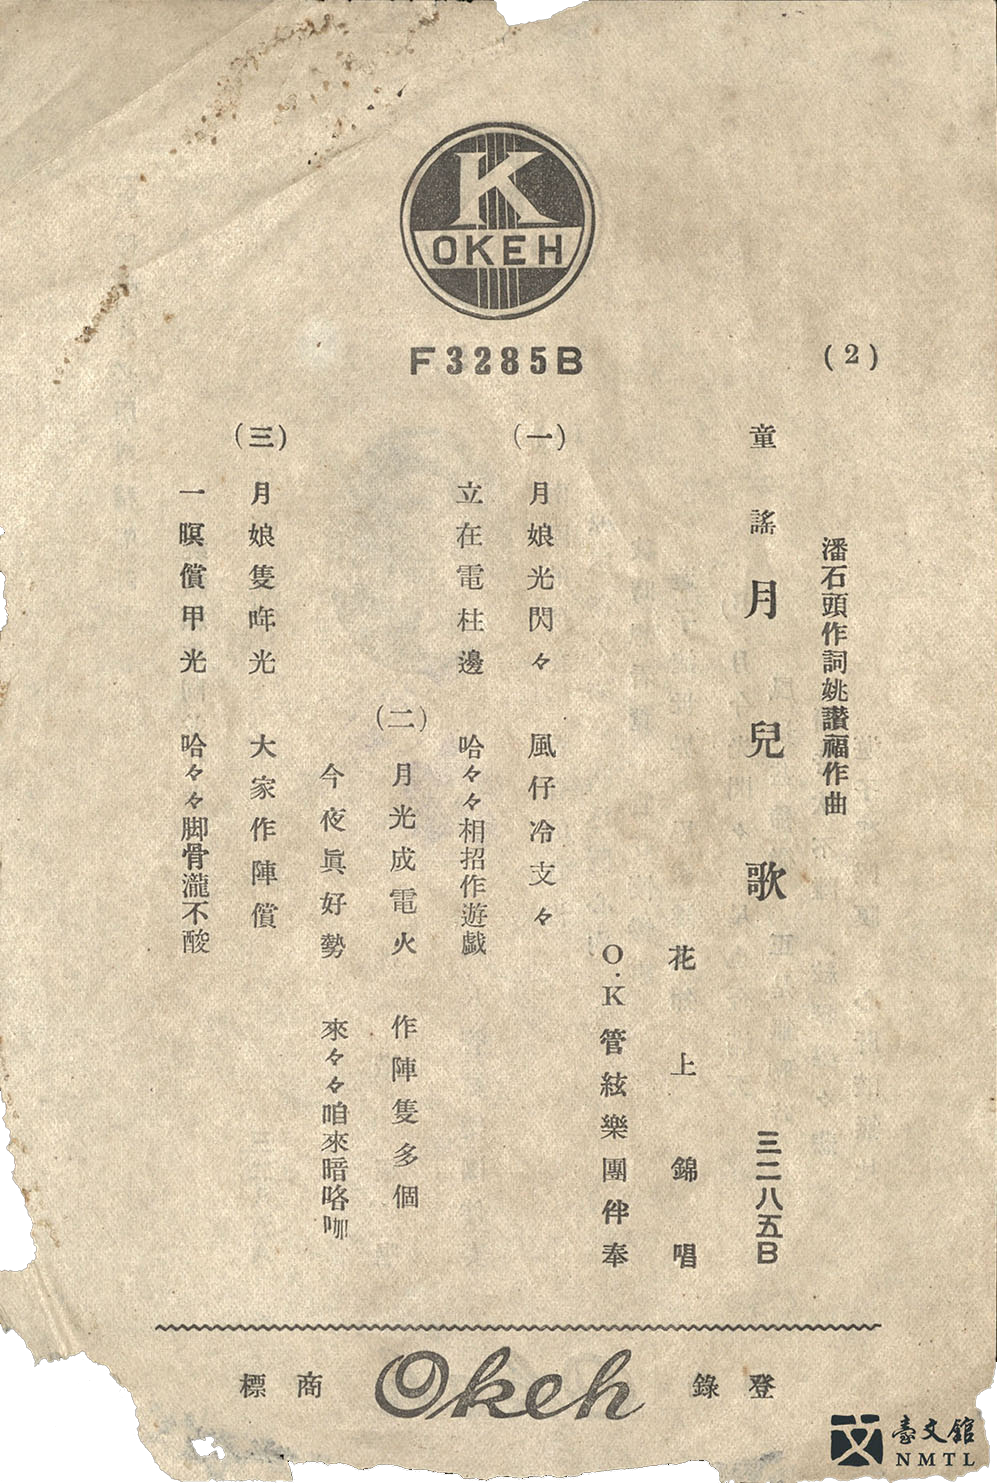 K
OKEH
F3285B
(2)
潘石頭作詞姚讚福作曲
童謠 月兒歌 三二八五B
花上錦唱
O.K管絃樂團伴奏
(一) 月娘光閃々 風仔冷支々
立在電柱邊 哈々々相招作遊戯
(二) 月光成電火 作陣隻多個
今夜眞好勢 來々々咱來暗咯㗎
(三) 月娘隻年光 大家作陣償
一暝償甲光 哈々々脚骨瀧不酸
登錄 Okeh 商標
臺文館
NMTL